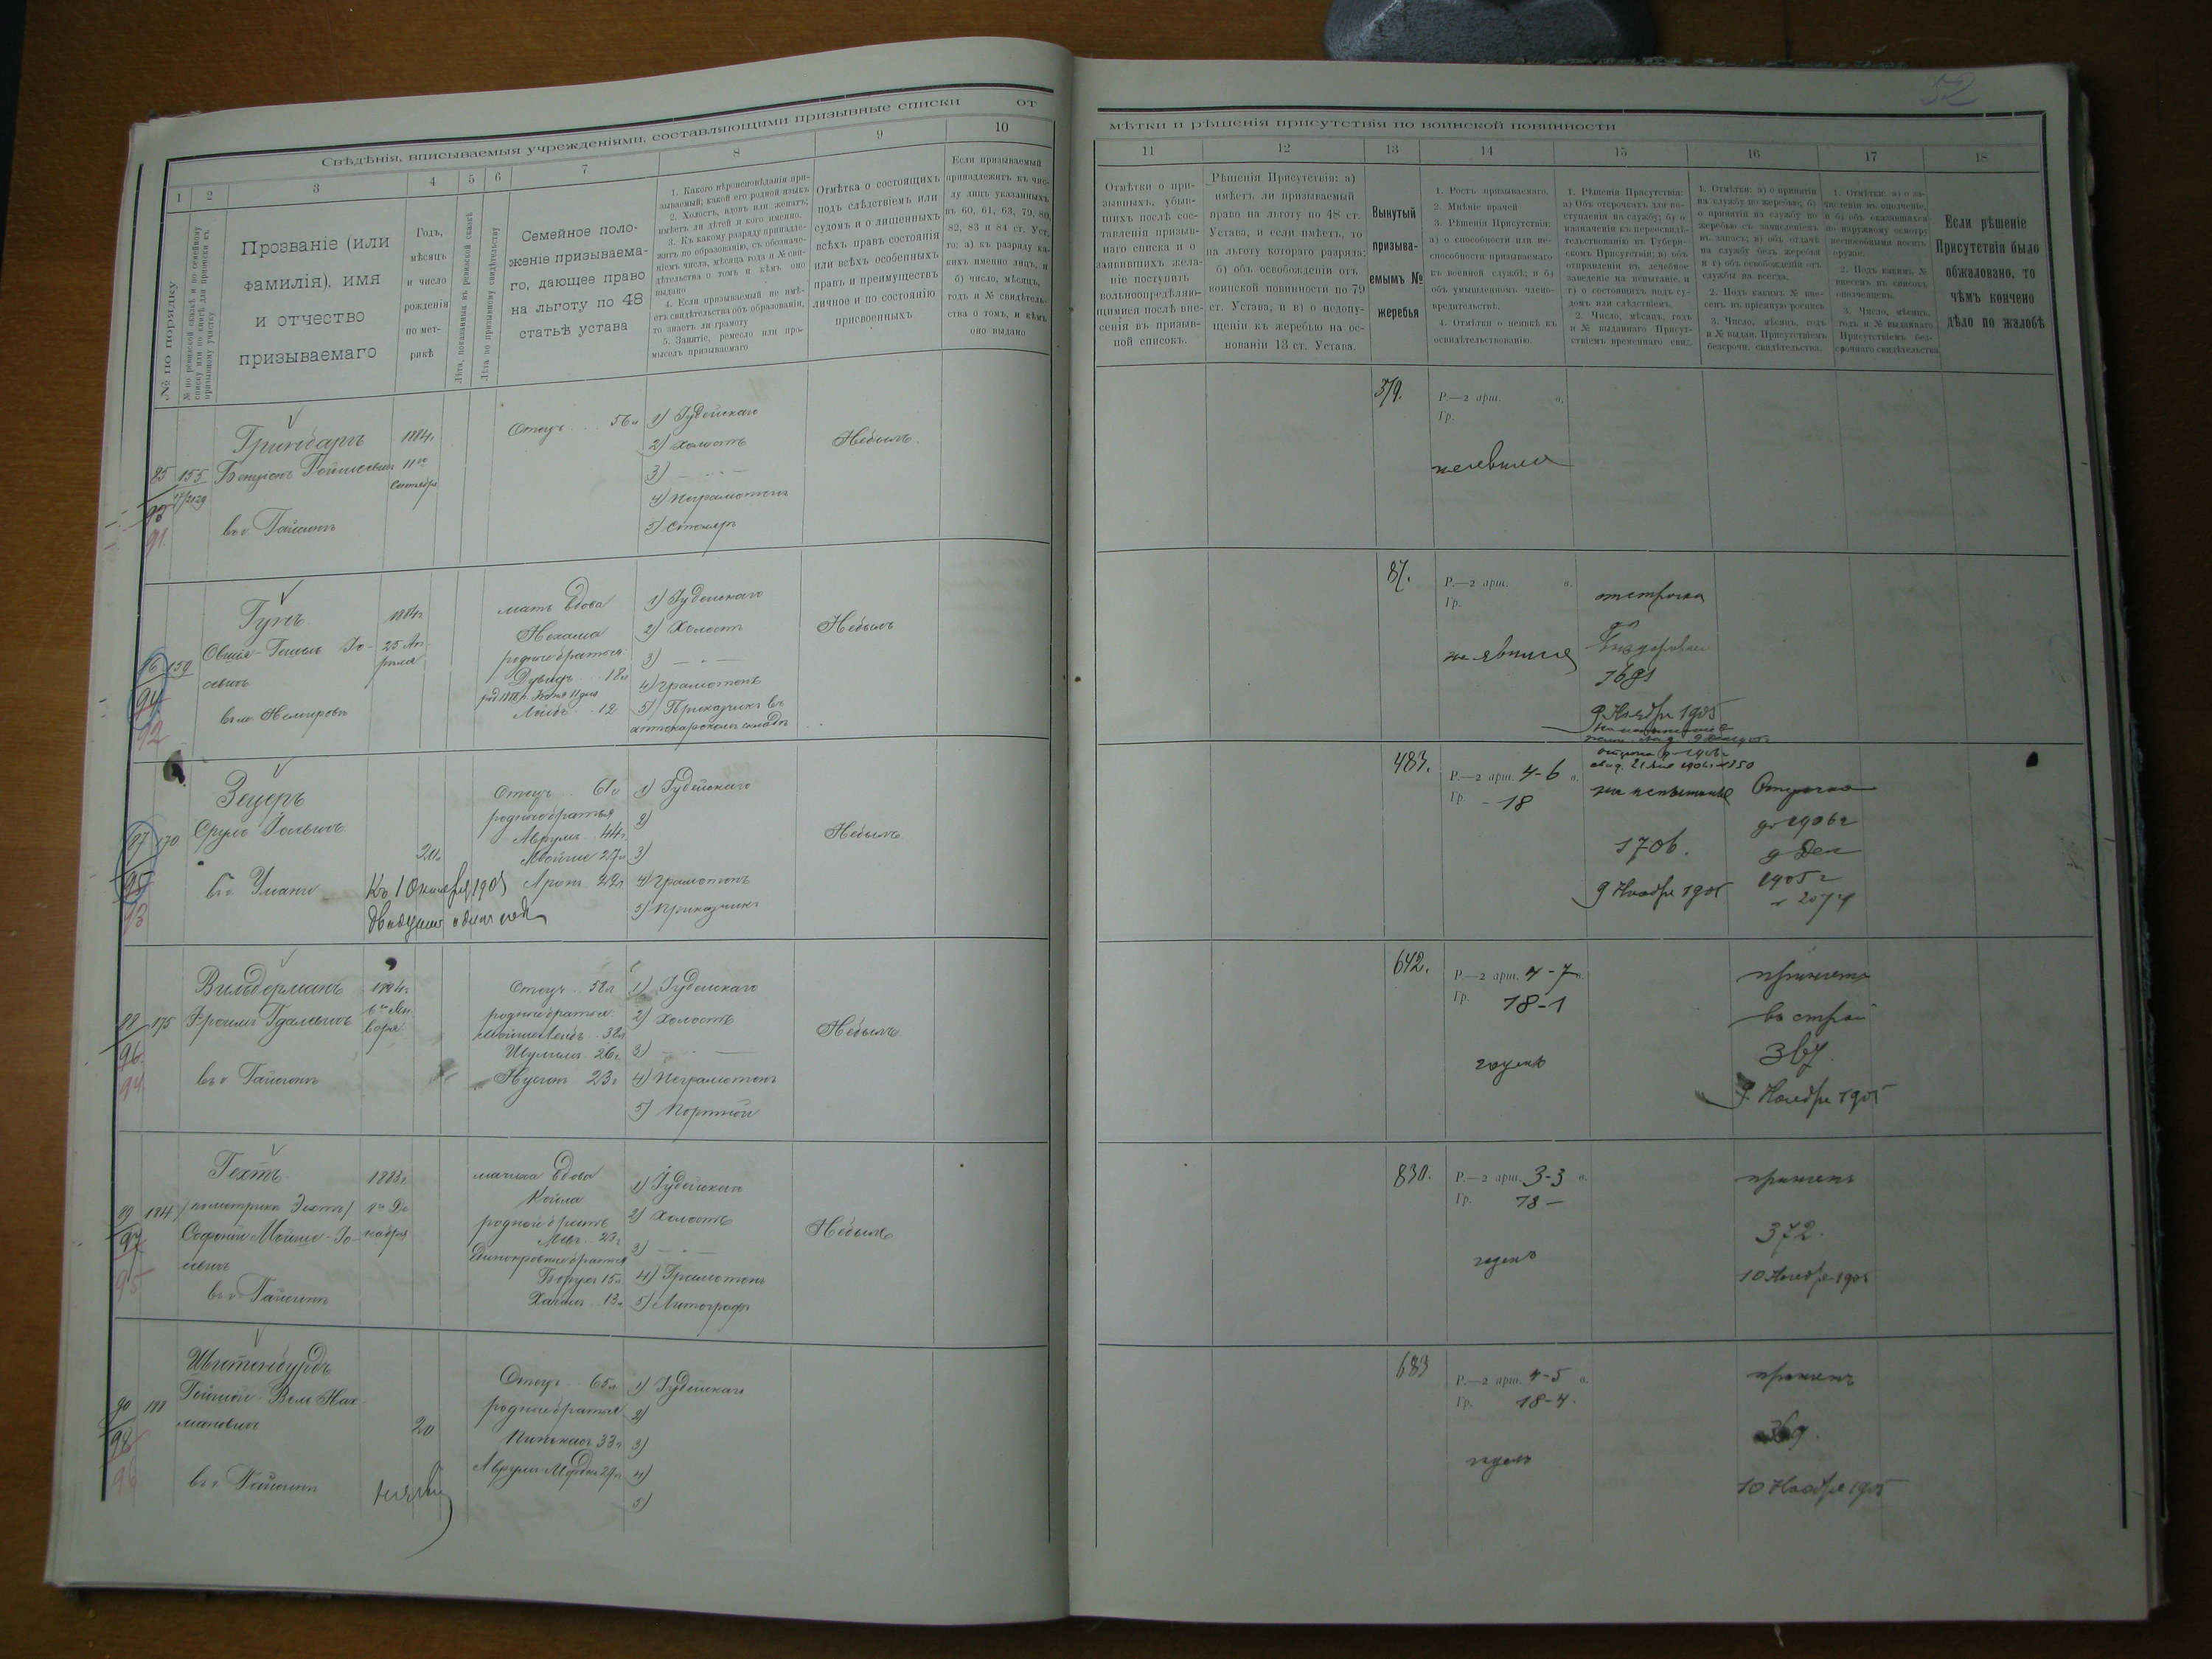 52
Свѣдѣнія, вписываемыя учрежденіями, составляющими призывные списки
от
мѣтки и рѣшенія присутствія по воинской повинности
1
2
3
4
5
6
7
8
9
10
11
12
13
14
15
16
17
18
№ по порядку
№ по ревизской сказкѣ и по семейному
списку или по книгѣ для приписки къ
призывному участку
Прозваніе (или
фамилія), имя
и отчество
призываемаго
Годъ,
мѣсяцъ
и число
рожденія
по мет-
рикѣ
Лѣта, показанныя въ ревизской сказкѣ
Лѣта по призывному свидѣтельству
Семейное поло-
женіе призываема-
го, дающее право
на льготу по 48
статьѣ устава
1. Какого вѣроисповѣданія при-
зываемый; какой его родной языкъ
2. Холостъ, вдовъ или женатъ;
имѣетъ ли дѣтей и кого именно.
3. Къ какому разряду принадле-
житъ по образованію, съ обозначе-
ніемъ числа, мѣсяца года и № сви-
дѣтельства о томъ и кѣмъ оно
выдано
4. Если призываемый не имѣ-
етъ свидѣтельства объ образованіи,
то знаетъ ли грамоту
5. Занятіе, ремесло или про-
мыселъ призываемаго
Отмѣтка о состоящихъ
подъ слѣдствіемъ или
судомъ и о лишенныхъ
всѣхъ правъ состоянія
или всѣхъ особенныхъ
правъ и преимуществъ
личное и по состоянію
присвоенныхъ
Если призываемый
принадлежитъ къ чис-
лу лицъ указанныхъ
въ 60, 61, 63, 79, 80,
82, 83 и 84 ст. Уст.,
то: а) къ разряду ка-
кихъ именно лицъ, и
б) число, мѣсяцъ,
годъ и № свидѣтель-
ства о томъ, и кѣмъ
оно выдано
Отмѣтки о при-
званныхъ, убыв-
шихъ послѣ сос-
тавленія призыв-
наго списка и о
заявившихъ жела-
ніе поступить
вольноопредѣляю-
щимися послѣ вне-
сенія въ призыв-
ной списокъ.
Рѣшенія Присутствія: а)
имѣетъ ли призываемый
право на льготу по 48 ст.
Устава, и если имѣетъ, то
на льготу котораго разряда;
б) объ освобожденіи отъ
воинской повинности по 79
ст. Устава, и в) о недопу-
щеніи къ жеребью на ос-
нованіи 13 ст. Устава.
Вынутый
призыва-
емымъ №
жеребья
1. Ростъ призываемаго.
2. Мнѣніе врачей
3. Рѣшенія Присутствія:
а) о способности или не-
способности призываемаго
къ военной службѣ; и б)
объ умышленномъ члено-
вредительствѣ.
4. Отмѣтки о неявкѣ къ
освидѣтельствованію.
1. Рѣшенія Присутствія:
а) Объ отсрочкахъ для по-
ступленія на службу; б) о
назначеніи къ переосвидѣ-
тельствованію въ Губерн-
скомъ Присутствіи; в) объ
отправленіи въ лечебное
заведеніе на испытаніе, и
г) о состоящихъ подъ су-
домъ или слѣдствіемъ.
2. Число, мѣсяцъ, годъ
и № выданнаго Присут-
ствіемъ временнаго свид.
1. Отмѣтки: а) о принятіи
на службу по жеребью; б)
о принятіи на службу по
жеребью съ зачисленіемъ
въ запасъ; в) объ отдачѣ
на службу безъ жеребья
и г) объ освобожденіи отъ
службы на всегда.
2. Подъ какимъ № вне-
сенъ въ пріемную роспись
3. Число, мѣсяцъ, годъ
и № выдан. Присутствіемъ
безсрочн. свидѣтельства.
1. Отмѣтки: а) о за-
численіи въ ополченіе,
и б) объ оказавшихся
по наружному осмотру
неспособными носить
оружіе;
2. Подъ какимъ №
внесенъ въ списокъ
ополченцевъ.
3. Число, мѣсяцъ,
годъ и № выданнаго
Присутствіемъ без-
срочнаго свидѣтельства
Если рѣшеніе
Присутствія было
обжаловано, то
чѣмъ кончено
дѣло по жалобѣ
85
155
93
91
Гринбаргъ
въ г. Гайсинъ
1884г.
11го
Сентября
Отецъ 56 л
1) Іудейскаго
2) Холостъ
3) —
4) Неграмотенъ
5) Столяръ
Небылъ
379.
Р.—2 арш. в.
Гр.
неявился
86
159
94
92
Гунъ
севичъ
1884г
25 Ап-
рѣля
мать вдова
Нехама
родные братья
18л
12
1) Іудейскаго
2) Холостъ
3) —
4) Грамотенъ
5) Приказчикъ въ
аптекарскомъ складѣ
Небылъ
87.
Р.—2 арш. в.
Гр.
неявился
отсрочка
9 Ноября 1905
87
170
95
93
Зецеръ
Сруль
въ г. Умани
21л
Къ 1 Октября 1905
двадцать одинъ годъ
Отецъ 61г
родные братья
Аврумъ 44г
Мойше 27л
Аронъ 22л
1) Іудейскаго
2)
3)
4) Грамотенъ
5) Приказчикъ
Небылъ
483.
Р.—2 арш. 4-6 в.
Гр. - 18
на испытаніе
170б.
9 Ноября 1905
Отсрочка
до 1906г
9 Дек
1905г
88
175
96
94
Вильдерманъ
Фроимъ Гдальевичъ
въ г. Гайсинъ
1884г
6го Ян-
варя
Отецъ 58л
родные братья
38л
Шулимъ 26л
Нусинъ 23г
1) Іудейскаго
2) Холостъ
3) —
4) Неграмотенъ
5) Портной
Небылъ
642.
Р.—2 арш. 4-7 в.
Гр. 18-1
годенъ
принятъ
въ строй
367.
9 Ноября 1905
89
184
97
95
Гехтъ
въ г. Гайсинъ
1883г
1го Де-
кабря
мачиха вдова
Койла
родной братъ
23г
Единокровные братья
Борухъ 15л
Хаимъ 13л
1) Іудейскаго
2) Холостъ
3) —
4) Грамотенъ
5) Литографъ
Небылъ
830.
Р.—2 арш. 3-3 в.
Гр. 18 –
годенъ
принятъ
372.
10 Ноября 1905
90
188
98
96
мановичъ
въ г. Гайсинъ
20
Отецъ 65л
родные братья
Пинхасъ 33л
27л
1) Іудейскаго
2)
3)
4)
5)
683
Р.—2 арш. 4-5 в.
Гр. 18-4.
годенъ
принятъ
369.
10 Ноября 1905